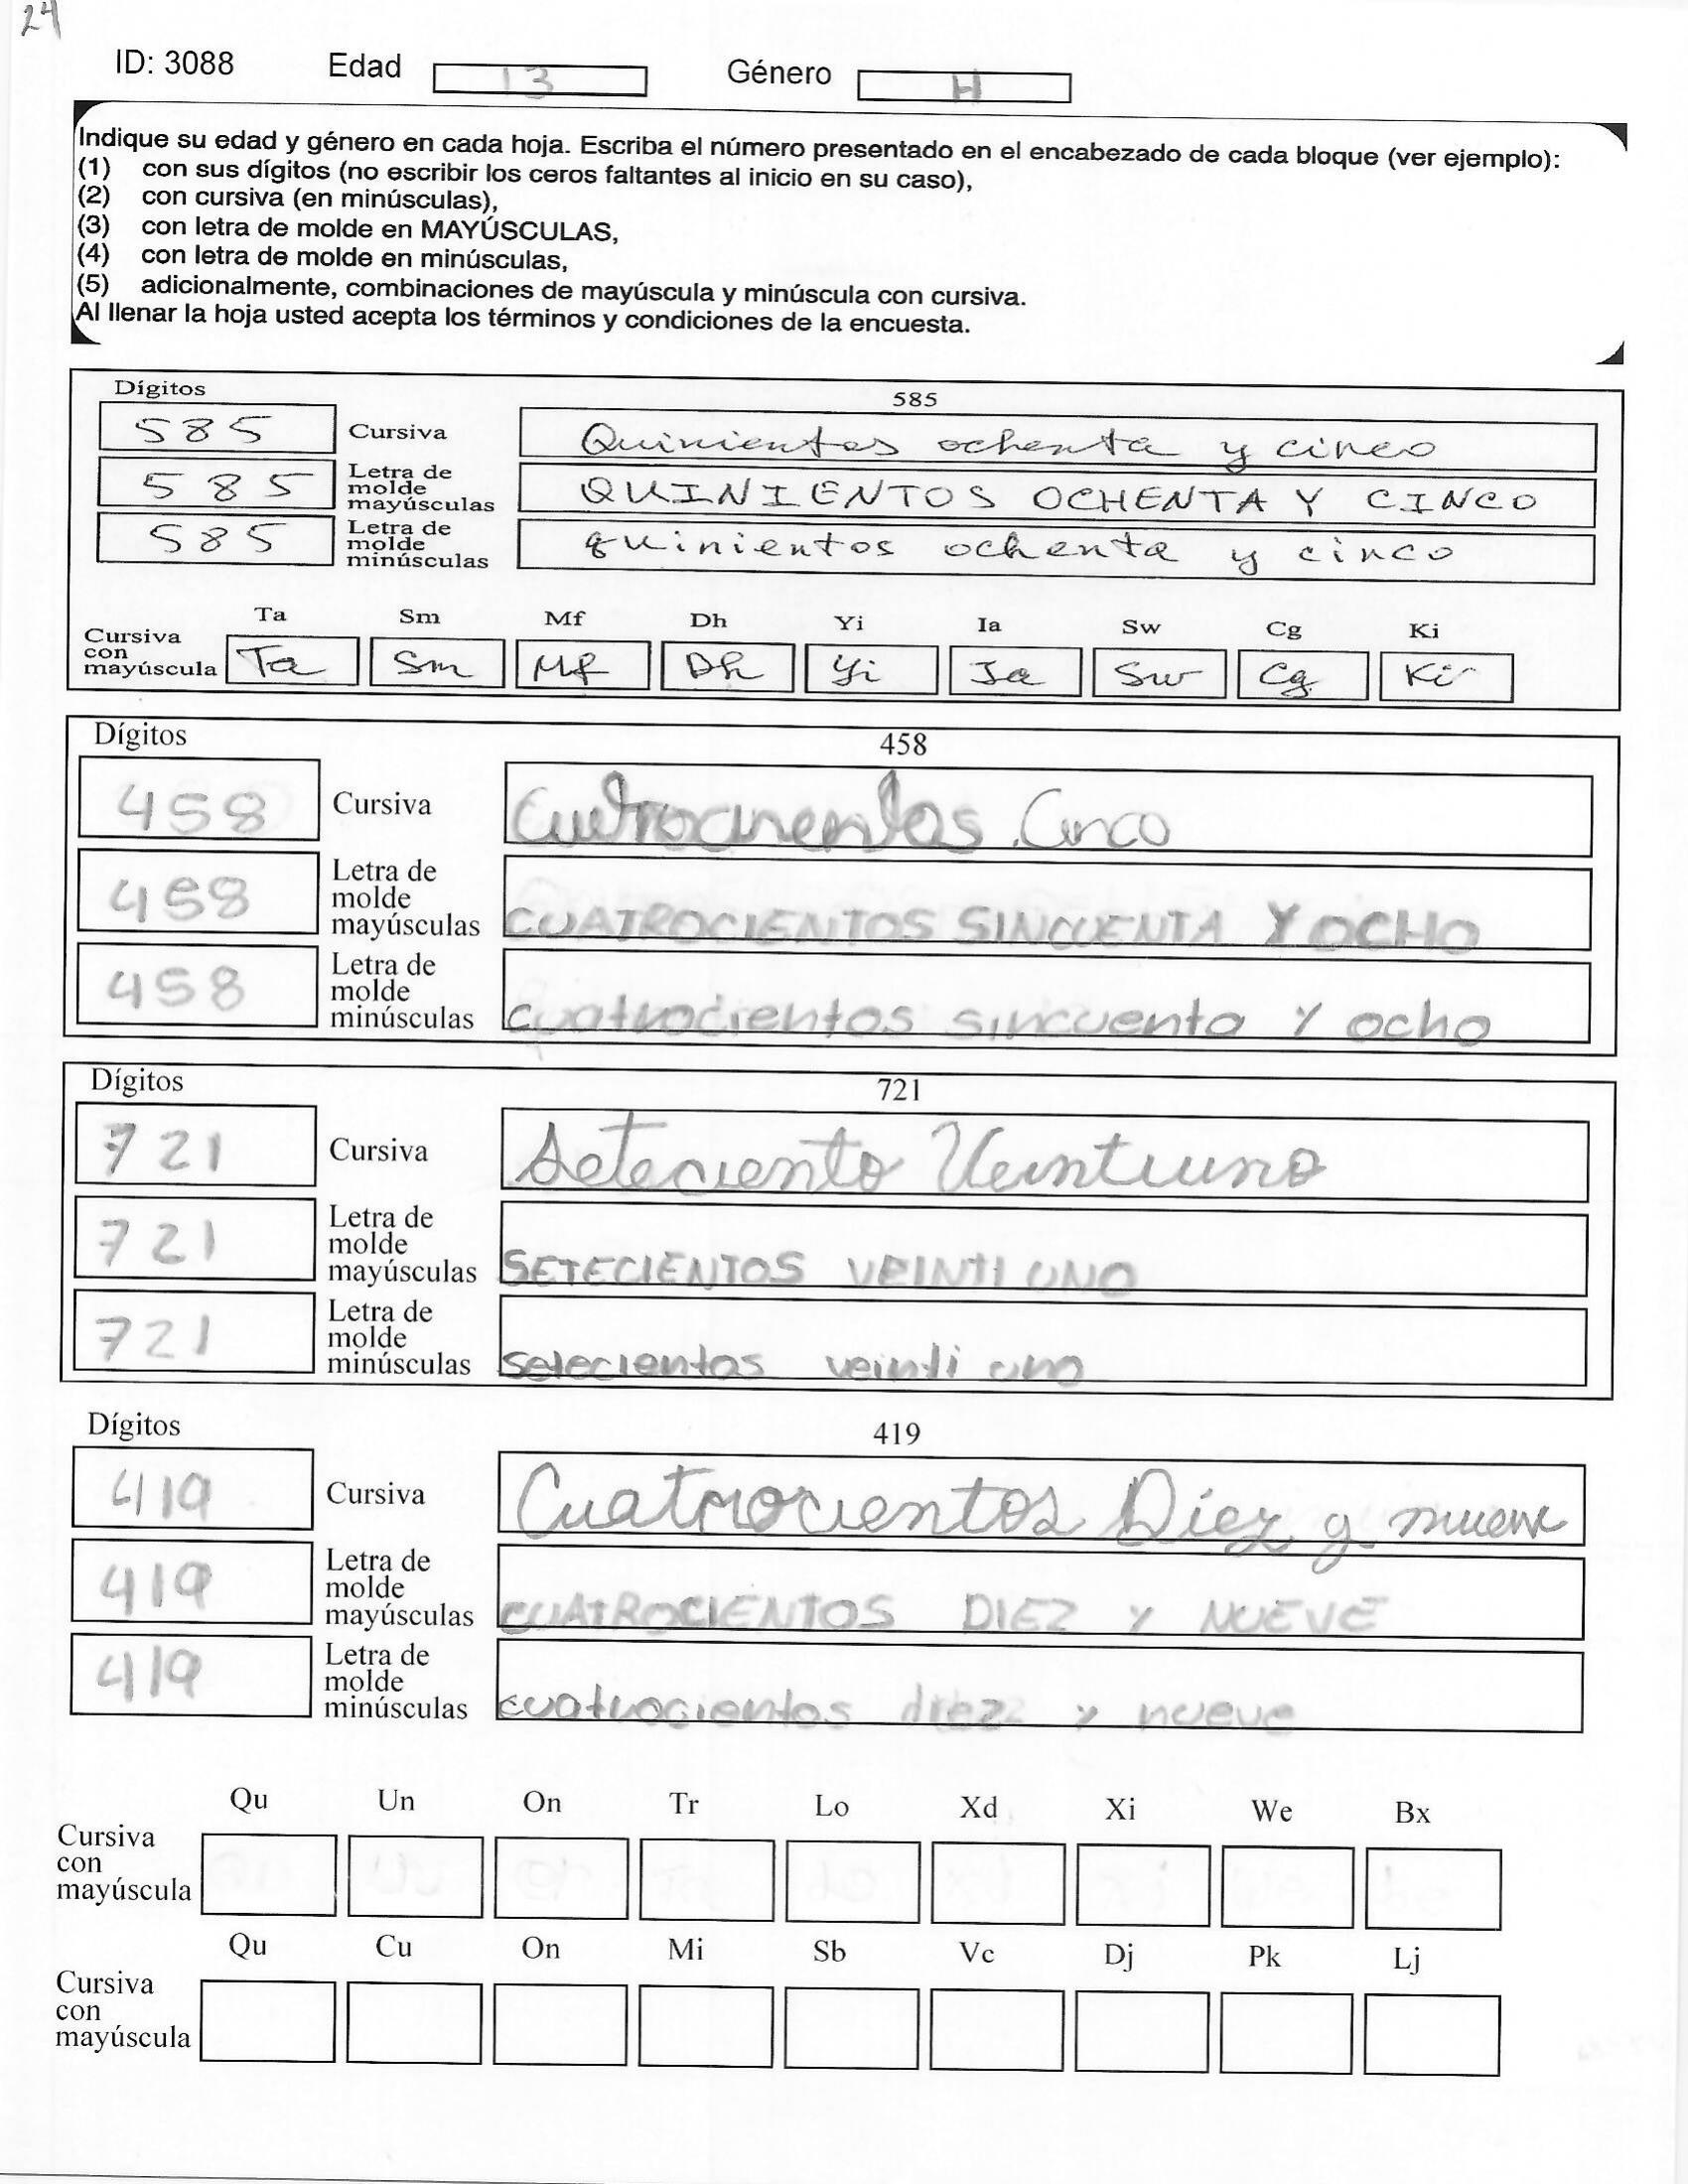 24
ID: 3088 Edad 13 Género H
Indique su edad y género en cada hoja. Escriba el número presentado en el encabezado de cada bloque (ver ejemplo):
(1) con sus dígitos (no escribir los ceros faltantes al inicio en su caso),
(2) con cursiva (en minúsculas),
(3) con letra de molde en MAYÚSCULAS,
(4) con letra de molde en minúsculas,
(5) adicionalmente, combinaciones de mayúscula y minúscula con cursiva.
Al llenar la hoja usted acepta los términos y condiciones de la encuesta.
Dígitos 585
585 Cursiva Quinientos ochenta y cinco
585 Letra de molde mayúsculas QUINIENTOS OCHENTA Y CINCO
585 Letra de molde minúsculas quinientos ochenta y cinco
Ta Sm Mf Dh Yi Ia Sw Cg Ki
Cursiva con mayúscula Ta Sm Mf Dh Yi Ia Sw Cg Ki
Dígitos 458
458 Cursiva Cuetrocinentos Cinco
458 Letra de molde mayúsculas CUATROCIENTOS SINCUENTA Y OCHO
458 Letra de molde minúsculas cuatrocientos sincuenta y ocho
Dígitos 721
721 Cursiva Seteciento Veintiuno
721 Letra de molde mayúsculas SETECIENTOS VEINTI UNO
721 Letra de molde minúsculas setecientos veinti uno
Dígitos 419
419 Cursiva Cuatrocientos Diez y nueve
419 Letra de molde mayúsculas CUATROCIENTOS DIEZ Y NUEVE
419 Letra de molde minúsculas cuatrocientos diez y nueve
Qu Un On Tr Lo Xd Xi We Bx
Cursiva con mayúscula
Qu Cu On Mi Sb Vc Dj Pk Lj
Cursiva con mayúscula